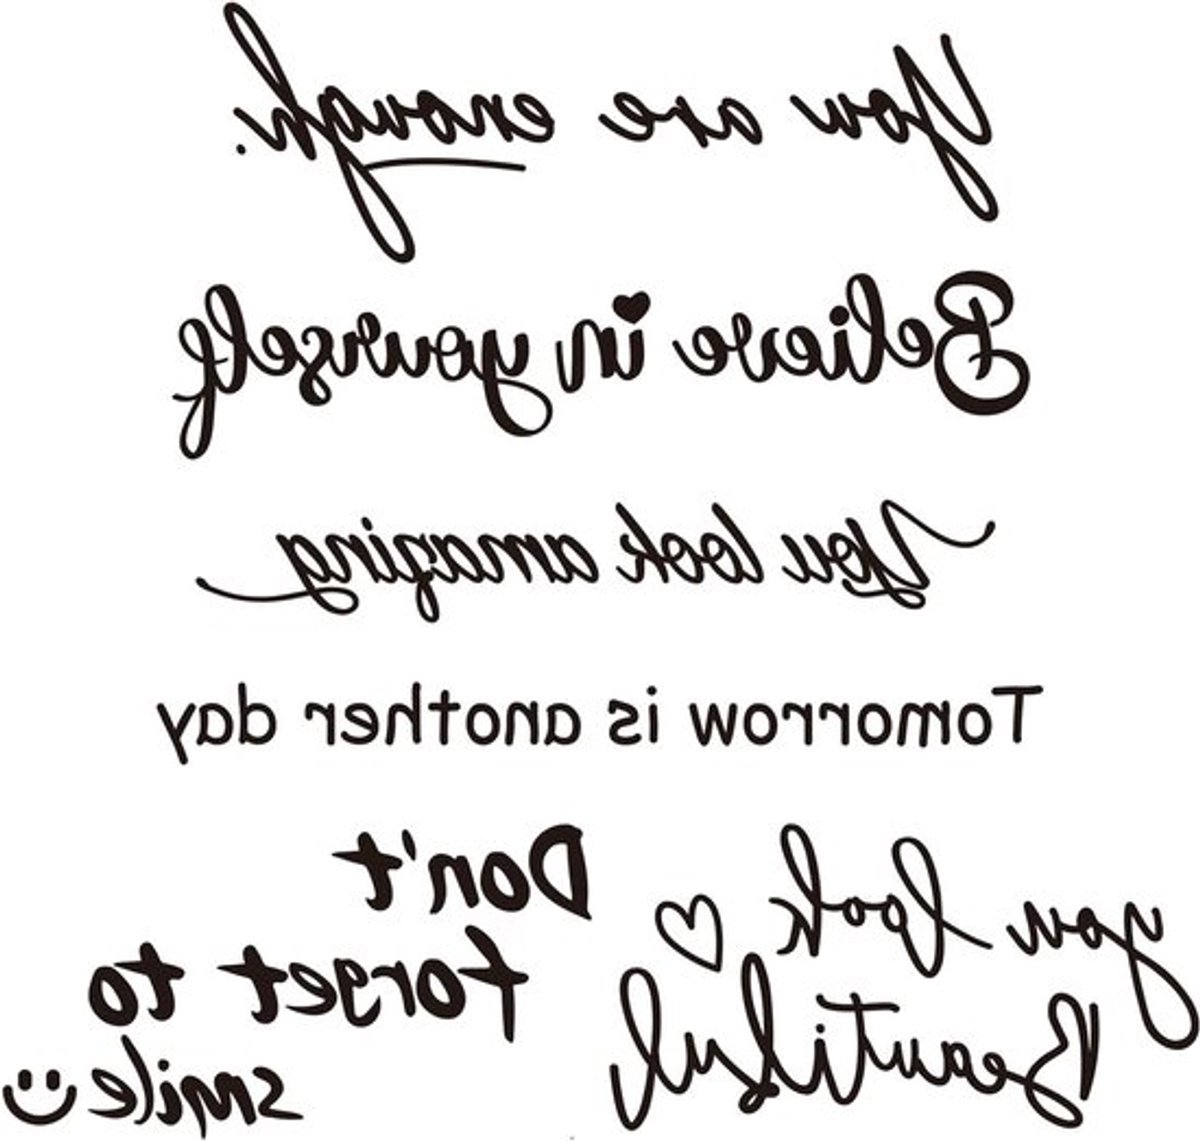 You are enough.
Believe in yourself
You look amazing
Tomorrow is another day
Don't
forget to
smile
you look
Beautiful